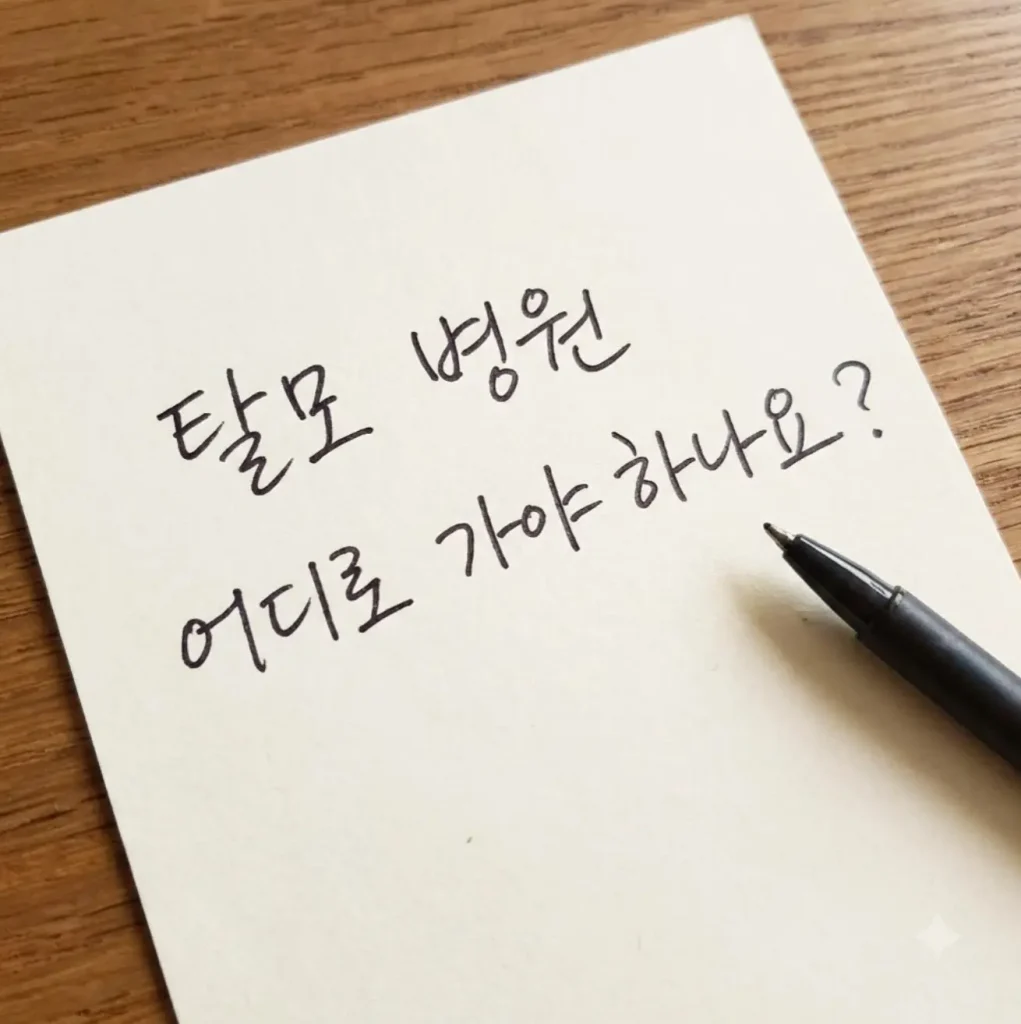 탈모 병원
어디로 가야하나요?